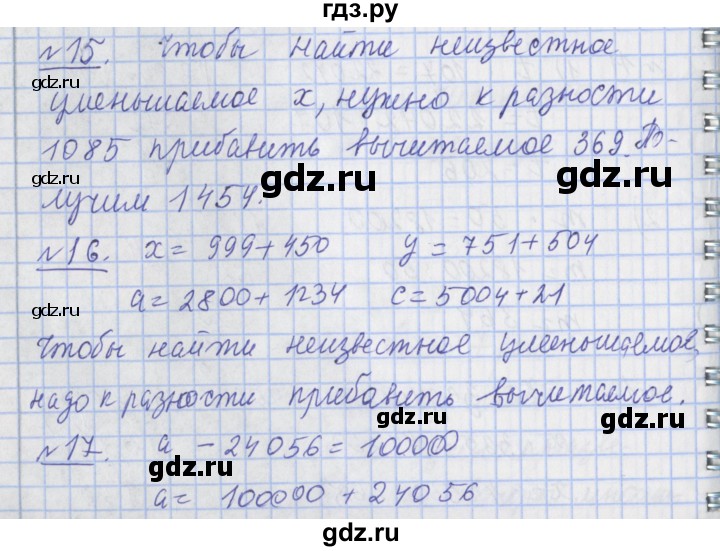 гдз.ру
№15. Чтобы найти неизвестное
gdz.ru gdz.ru
уменьшаемое х, нужно к разности
1085 прибавить вычитаемое 369. По-
gdz.ru gdz.ru
лучим 1454.
№16. х = 999+450 у = 751+504
gdz.ru gdz.ru
а = 2800+1234 с = 5004+21
Чтобы найти неизвестное уменьшаемое,
gdz.ru gdz.ru
надо к разности прибавить вычитаемое.
№17. а - 24056 = 100000
gdz.ru gdz.ru
а = 100000 + 24056
gdz.ru